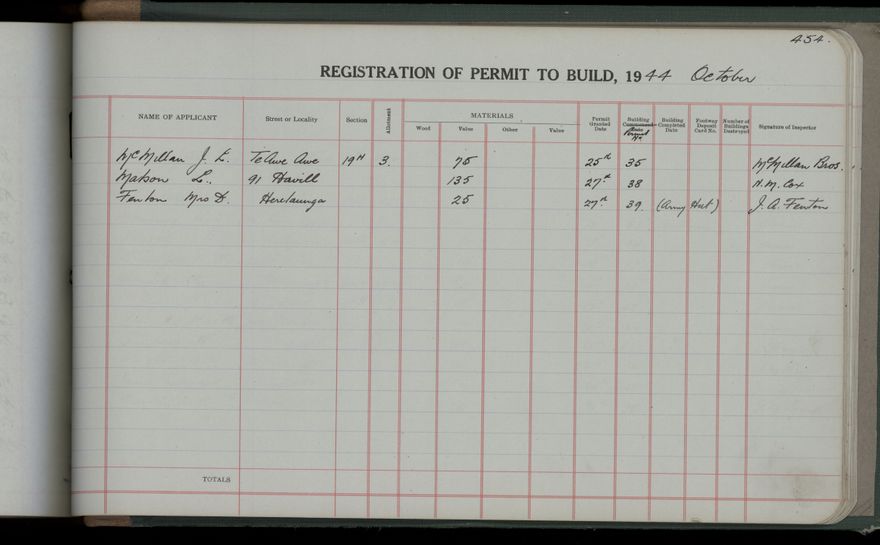 454.
REGISTRATION OF PERMIT TO BUILD, 1944 October
NAME OF APPLICANT Street or Locality Section Allotment MATERIALS Wood Value Other Value Permit Granded Date Building Commenced Date Permit No. Building Completed Date Footway Deposit Card No. Number of Buildings Destroyed Signature of Inspector
McMillan J. L. TeAwe Awe 19H 3. 75 25th 35 McMillan Bros.
Matson L. 91 Havill 135 27th 38 N. M. Cox
Fenton Mrs D. Heretaunga 25 27th 39. (Army Hut) J. A. Fenton
TOTALS